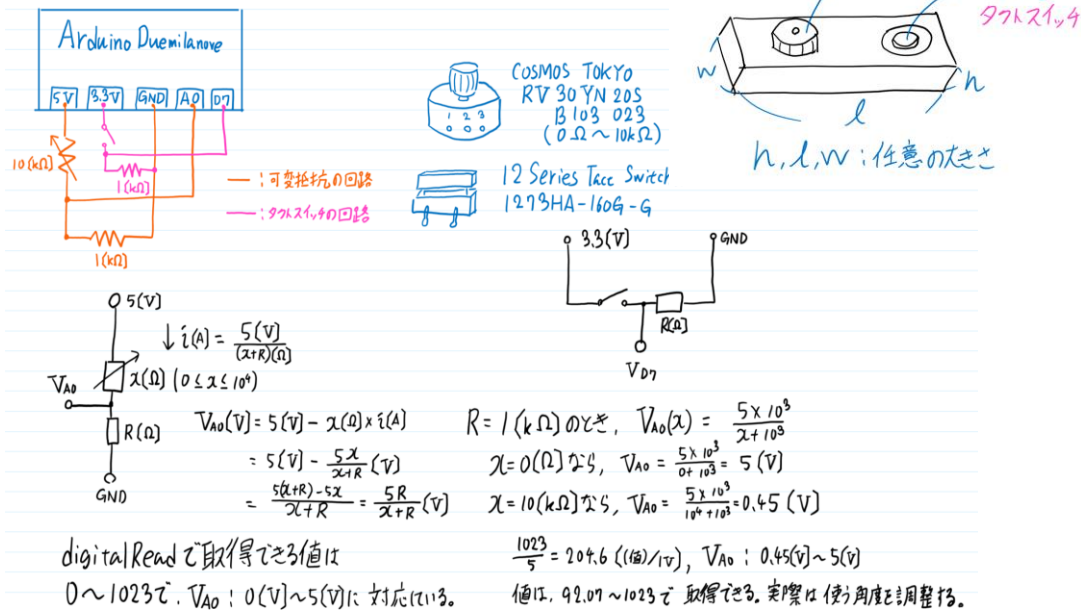 Arduino Duemilanove
5V 3.3V GND A0 D7
10(kΩ)
1(kΩ)
1(kΩ)
ー:可変抵抗の回路
ー:タクトスイッチの回路
1 2 3
COSMOS TOKYO
RV 30 YN 20S
B103 023
(0Ω~10kΩ)
12 Series Tacc Switch
1273HA-160G-G
タクトスイッチ
w
h
l
h, l, w:任意の大きさ
3.3(V)
GND
R(Ω)
VD7
5(V)
↓i(A) = 5(V)/(x+R)(Ω)
VA0
x(Ω) (0≤x≤10⁴)
R(Ω)
GND
VA0(V) = 5(V) - x(Ω)×i(A)
= 5(V) - 5x/(x+R) (V)
= (5(x+R)-5x)/(x+R) = 5R/(x+R) (V)
R = 1(kΩ)のとき, VA0(x) = 5×10³/(x+10³)
x=0(Ω)なら, VA0 = 5×10³/(0+10³) = 5(V)
x=10(kΩ)なら, VA0 = 5×10³/(10⁴+10³) = 0.45(V)
digitalReadで取得できる値は
0~1023で, VA0:0(V)~5(V)に対応している。
1023/5 = 204.6 ((値)/1V), VA0:0.45(V)~5(V)
値は, 92.07~1023で取得できる。実際は使う角度を調整する。